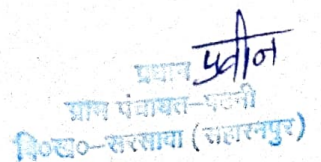 प्रवीन
प्रधान
ग्राम पंचायत-पठनी
वि०ख०-सरसावा (सहारनपुर)